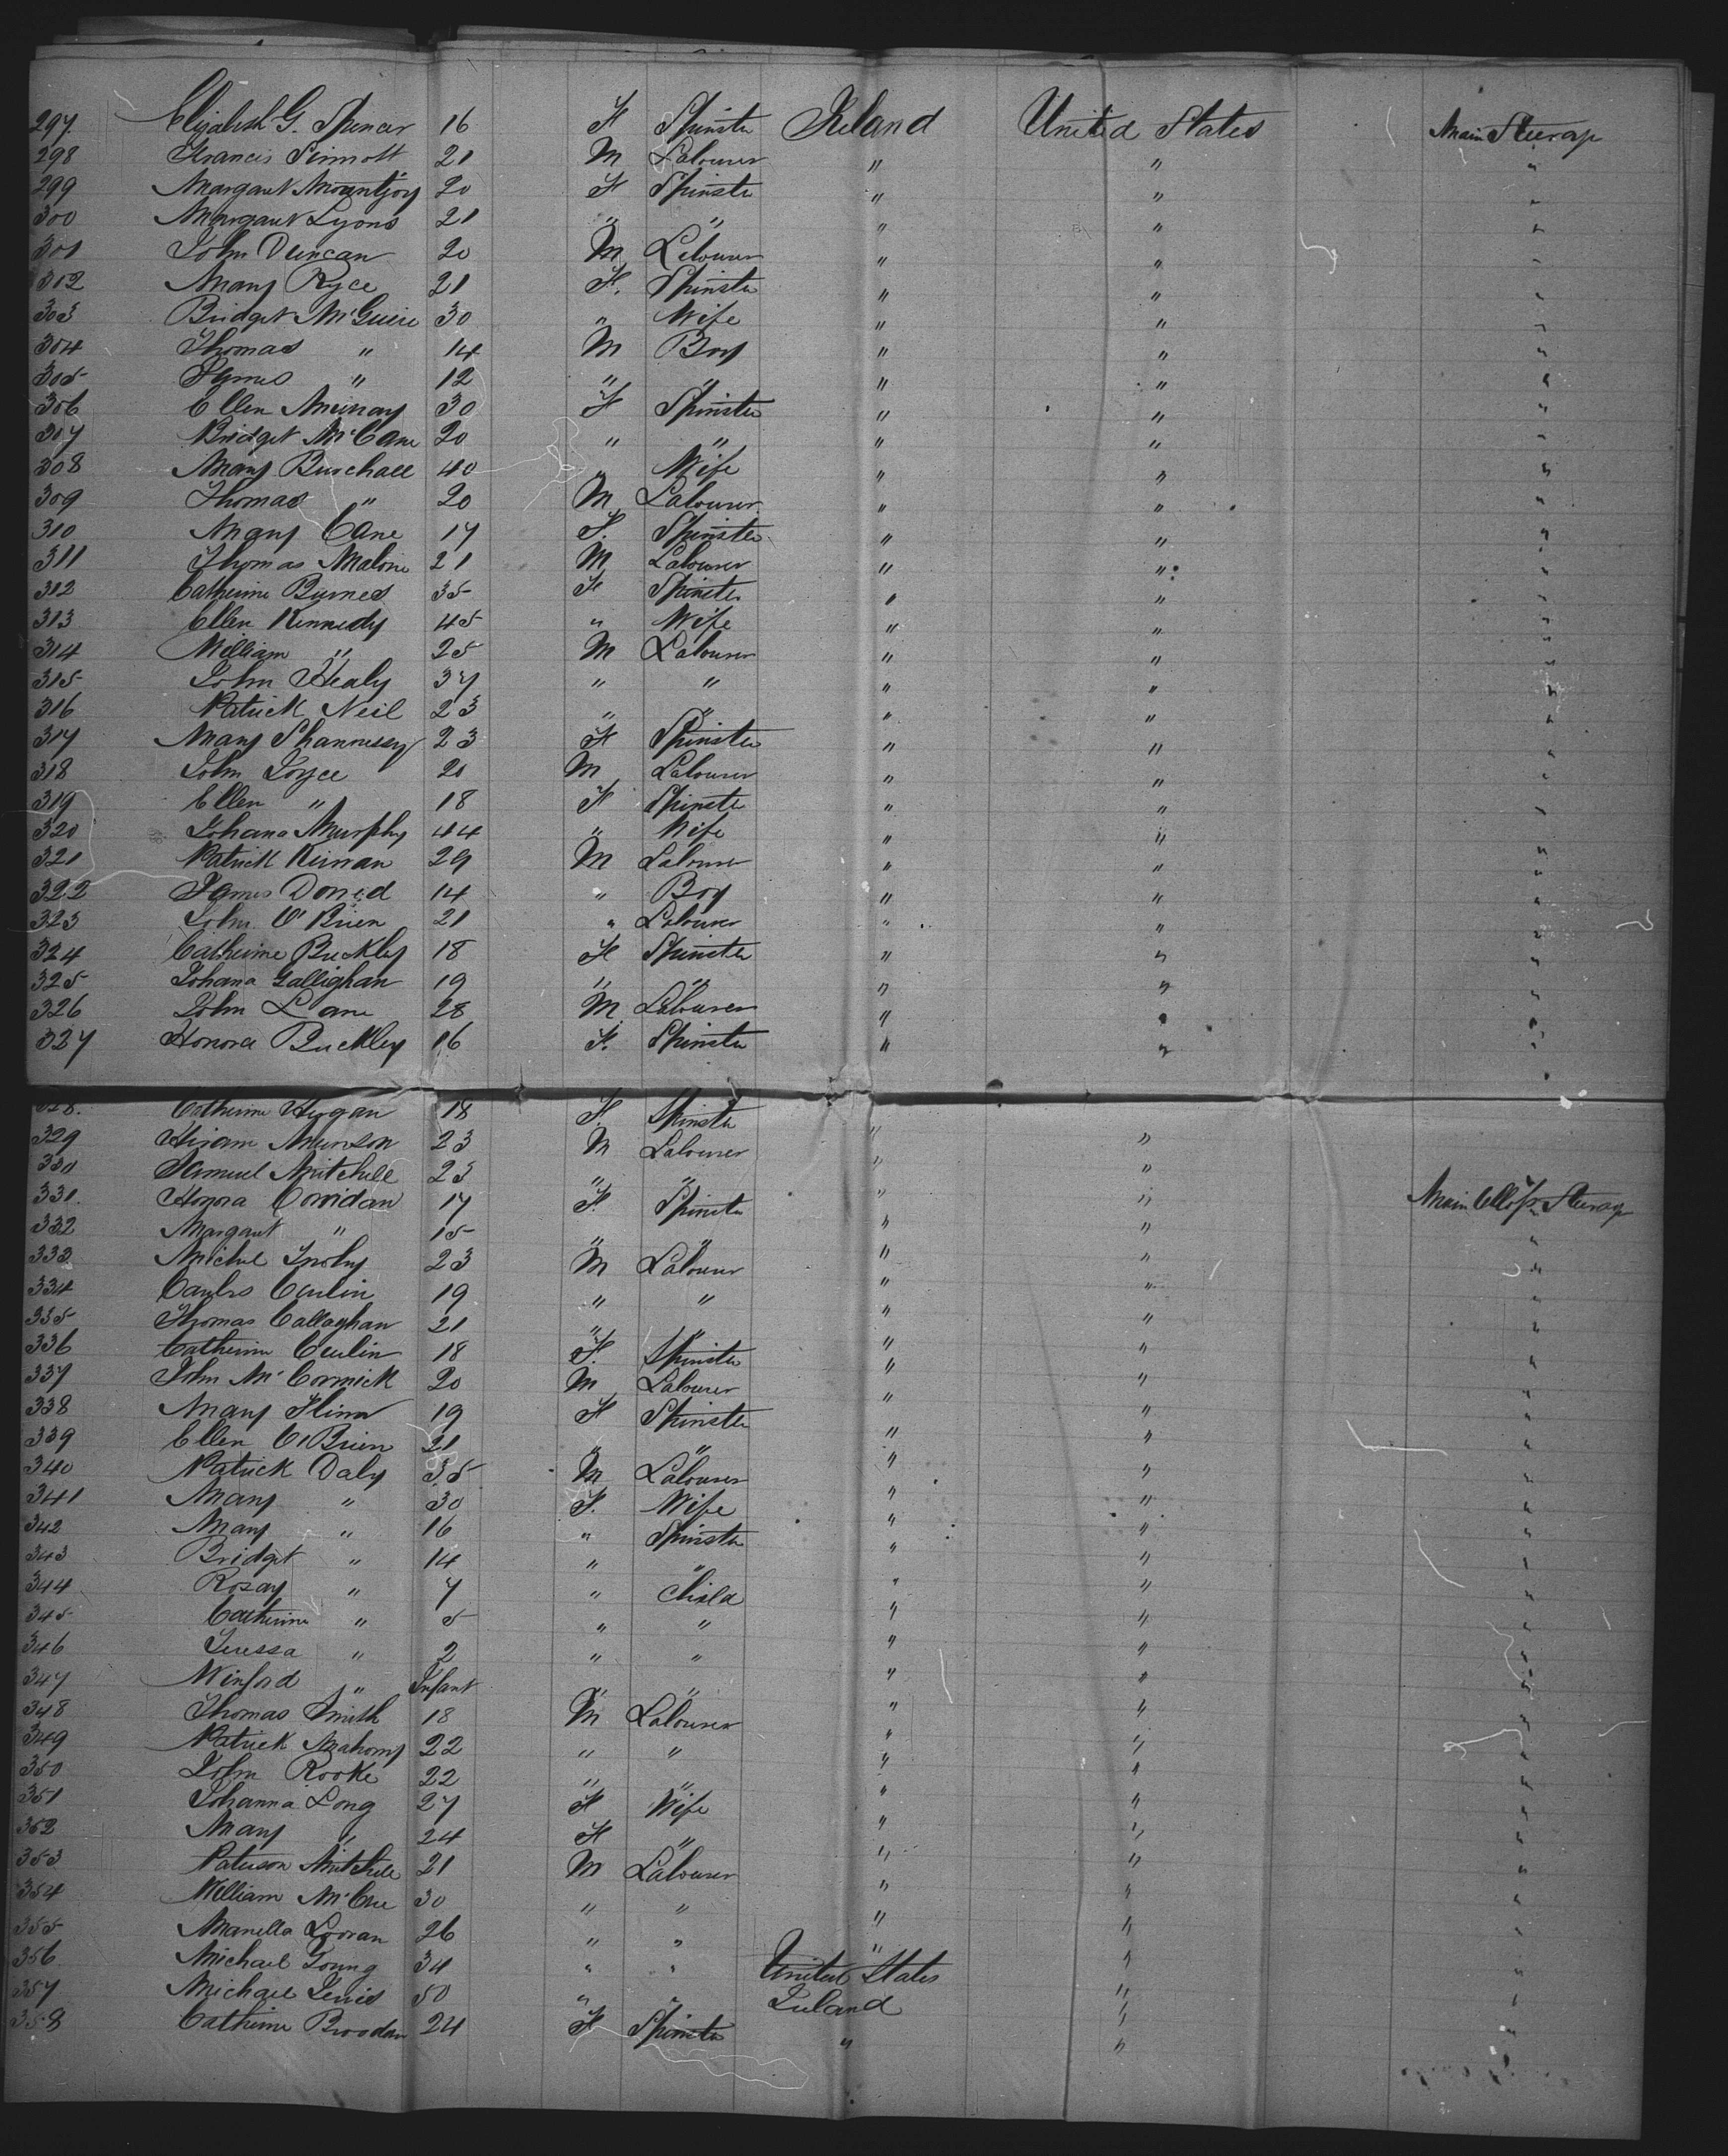 297. Elizabeth G. Spencer 16 F Spinster Ireland United States Main Steerage
298 Francis Sinnott 21 M Labourer " " "
299 Margaret Mountjoy 20 F Spinster " " "
300 Margaret Lyons 21 " " " " "
301 John Duncan 20 M Labourer " " "
302 Mary Ryce 21 F. Spinster " " "
303 Bridget McGuire 30 " Wife " " "
304 Thomas " 14 M Boy " " "
305 James " 12 " " " " "
306 Ellen Murray 30 F Spinster " " "
307 Bridget McCane 20 " " " " "
308 Mary Burchall 40 " Wife " " "
309 Thomas " 20 M Labourer " " "
310 Mary Cane 17 F. Spinster " " "
311 Thomas Malone 21 M Labourer " " "
312 Catherine Byrnes 35 F Spinster " " "
313 Ellen Kennedy 45 " Wife " " "
314 William " 25 M Labourer " " "
315 John Healy 37 " " " " "
316 Patrick Neil 23 " " " " "
317 Mary Shannessy 23 F Spinster " " "
318 John Joyce 20 M Labourer " " "
319 Ellen " 18 F Spinster " " "
320 Johana Murphy 44 " Wife " " "
321 Patrick Kirwan 29 M Labourer " " "
322 James 14 " Boy " " "
323 John O'Brien 21 " Labourer " " "
324 Catherine Buckley 18 F Spinster " " "
325 Johana Gallighan 19 " " " " "
326 John Lane 28 M Labourer " " "
327 Honora Buckley 16 F. Spinster " " "
328. Catherine Hogan 18 F. Spinster " "
329 Hiram Munson 23 M Labourer " "
330 Samuel Mitchell 23 " " " "
331. Honora Corridan 17 F. Spinster " " Main Steerage
332 Margaret " 15 " " " " "
333 Michel 23 M Labourer " " "
334 Carlin 19 " " " " "
335 Thomas Callaghan 21 " " " " "
336 Catherine 18 F. Spinster " " "
337 John McCormick 20 M Labourer " " "
338 Mary Flinn 19 F Spinster " " "
339 Ellen O'Brien 21 " " " " "
340 Patrick Daly 35 M Labourer " " "
341 Mary " 30 F. Wife " " "
342 Mary " 16 " Spinster " " "
343 Bridget " 14 " " " " "
344 Rosay " 7 " Child " " "
345 Catherine " 5 " " " " "
346 Teressa " 2 " " " " "
347 Winford " Infant " " " " "
348 Thomas Smith 18 M Labourer " " "
349 Patrick Mahony 22 " " " " "
350 John Rooke 22 " " " " "
351 Johanna Long 27 F Wife " " "
352 Mary " 24 F " " " "
353 Paterson Mitchell 21 M Labourer " " "
354 William McCue 30 " " " " "
355 26 " " " " "
356 Michael Young 34 " " United States " "
357 Michael Lewis 50 " " Ireland " "
358 Catherine 24 F Spinster " " "